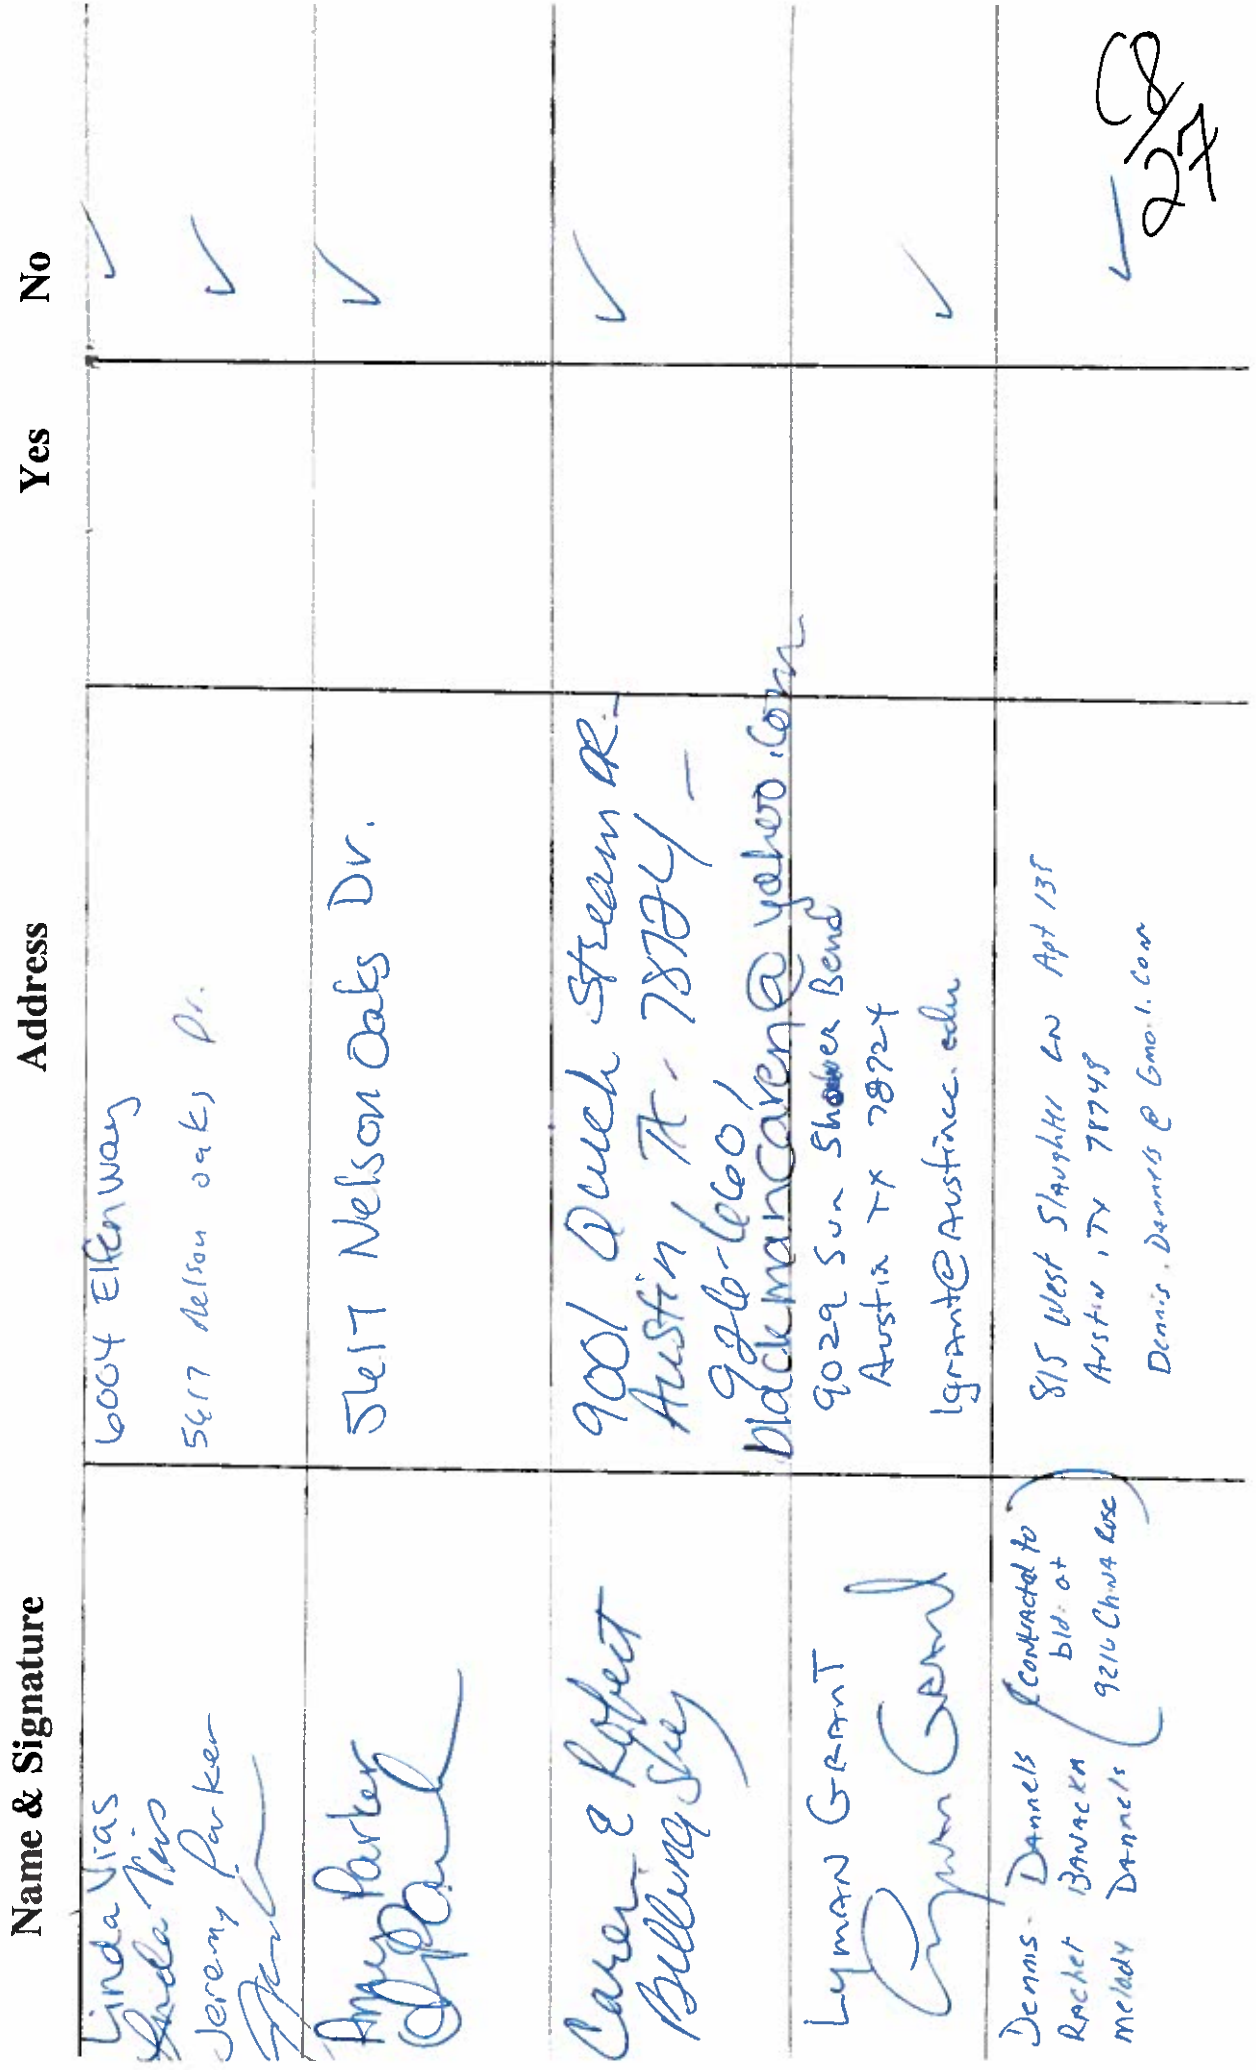 Name & Signature
Address
Yes
No
Linda Vias
Linda Vias
6004 Elfen Way
✓
Jeremy Parker
5617 Nelson oaks Dr.
✓
Amy Parker
5617 Nelson Oaks Dr.
✓
Caren & Robert
Billingsley
9001 Quick Stream DR.
Austin, TX. 78724 -
926-6601
blackmancaren@yahoo.com
✓
Lyman GRANT
Lyman Grant
9029 Sun Shower Bend
Austin TX 78724
lgrant@Austincc.edu
✓
Dennis Dannels
Rachel
melady Dannels
(Contracted to
bld. at
9216 China Rose)
815 West Slaughter LN Apt 135
Austin, TX 78748
Dennis.Dannels@Gmail.com
✓
C8/27